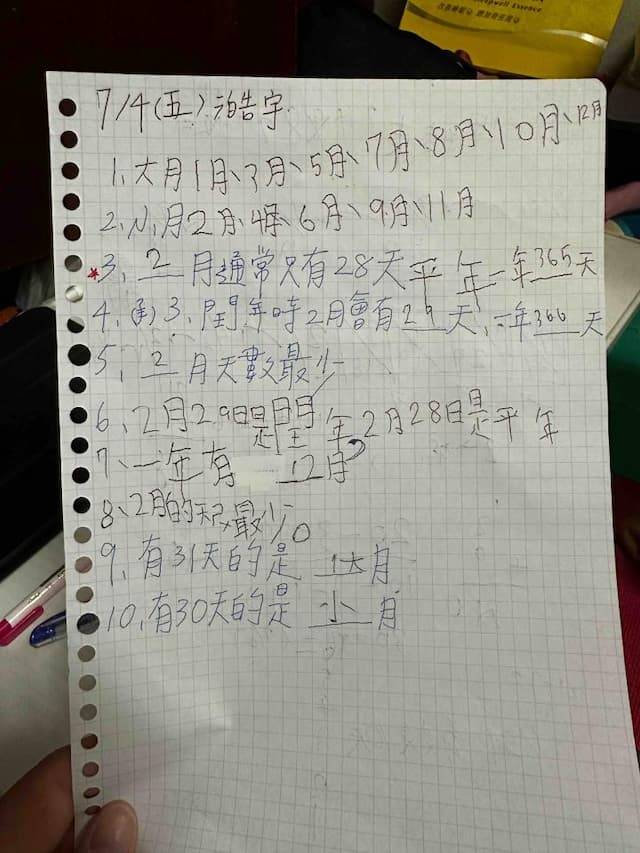 Essence
7/4(五)浩宇
1、大月1月、3月、5月、7月、8月、10月、12月
2、小月2月、4月、6月、9月、11月
*3、2月通常只有28天平年一年365天
4、3、閏年時2月會有29天,一年366天
5、2月天數最少
6、2月29日是閏年,2月28日是平年
7、一年有 12月
8、2月的天數最少。
9、有31天的是 大月
10、有30天的是 小月